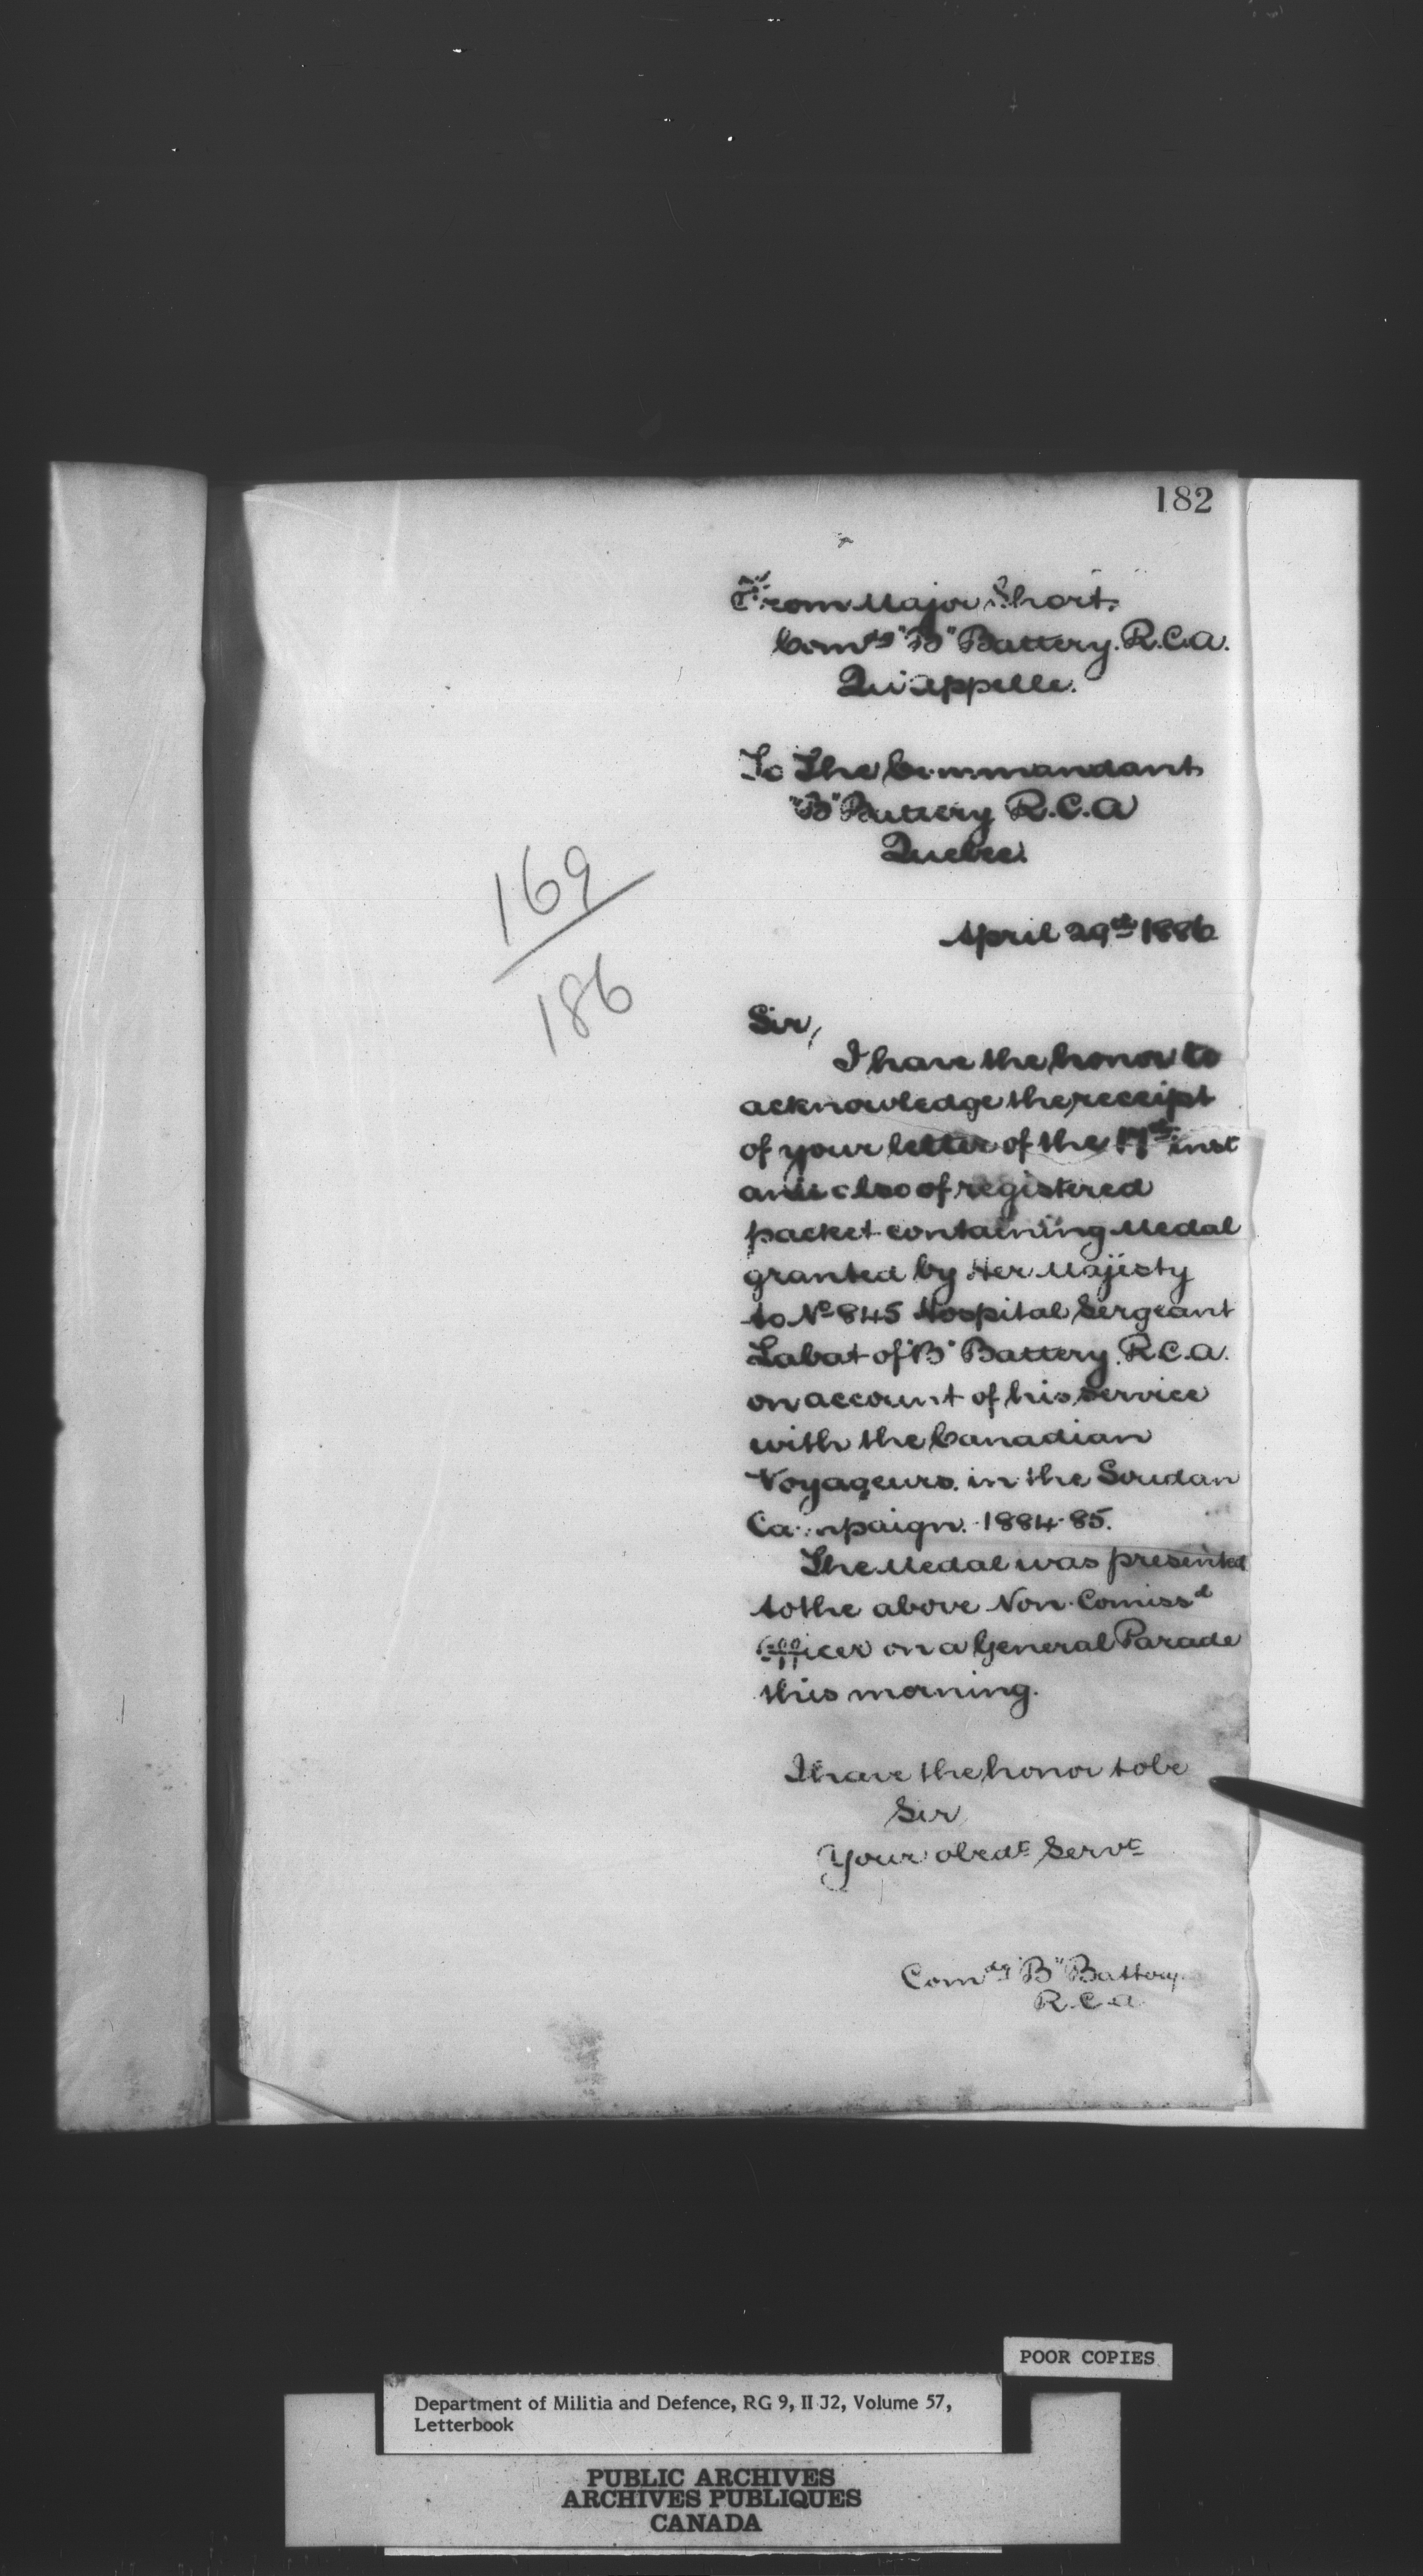 182
From Major Short.
Comdg "B" Battery. R.C.A.
Qu'appelle.
To The Commandant
"B" Battery R.C.A
Quebec.
169
186
April 29th 1886
Sir,
I have the honor to
acknowledge the receipt
of your letter of the 17th inst
and also of registered
packet containing Medal
granted by Her Majesty
to No 845 Hospital Sergeant
Labat of "B" Battery. R.C.A.
on account of his service
with the Canadian
Voyageurs. in the Soudan
Campaign. 1884-85.
The Medal was presented
to the above Non-Comissd
Officer on a General Parade
this morning.
I have the honor to be
Sir
Your obedt Servt
Comdg "B" Battery
R.C.A
POOR COPIES
Department of Militia and Defence, RG 9, II J2, Volume 57,
Letterbook
PUBLIC ARCHIVES
ARCHIVES PUBLIQUES
CANADA